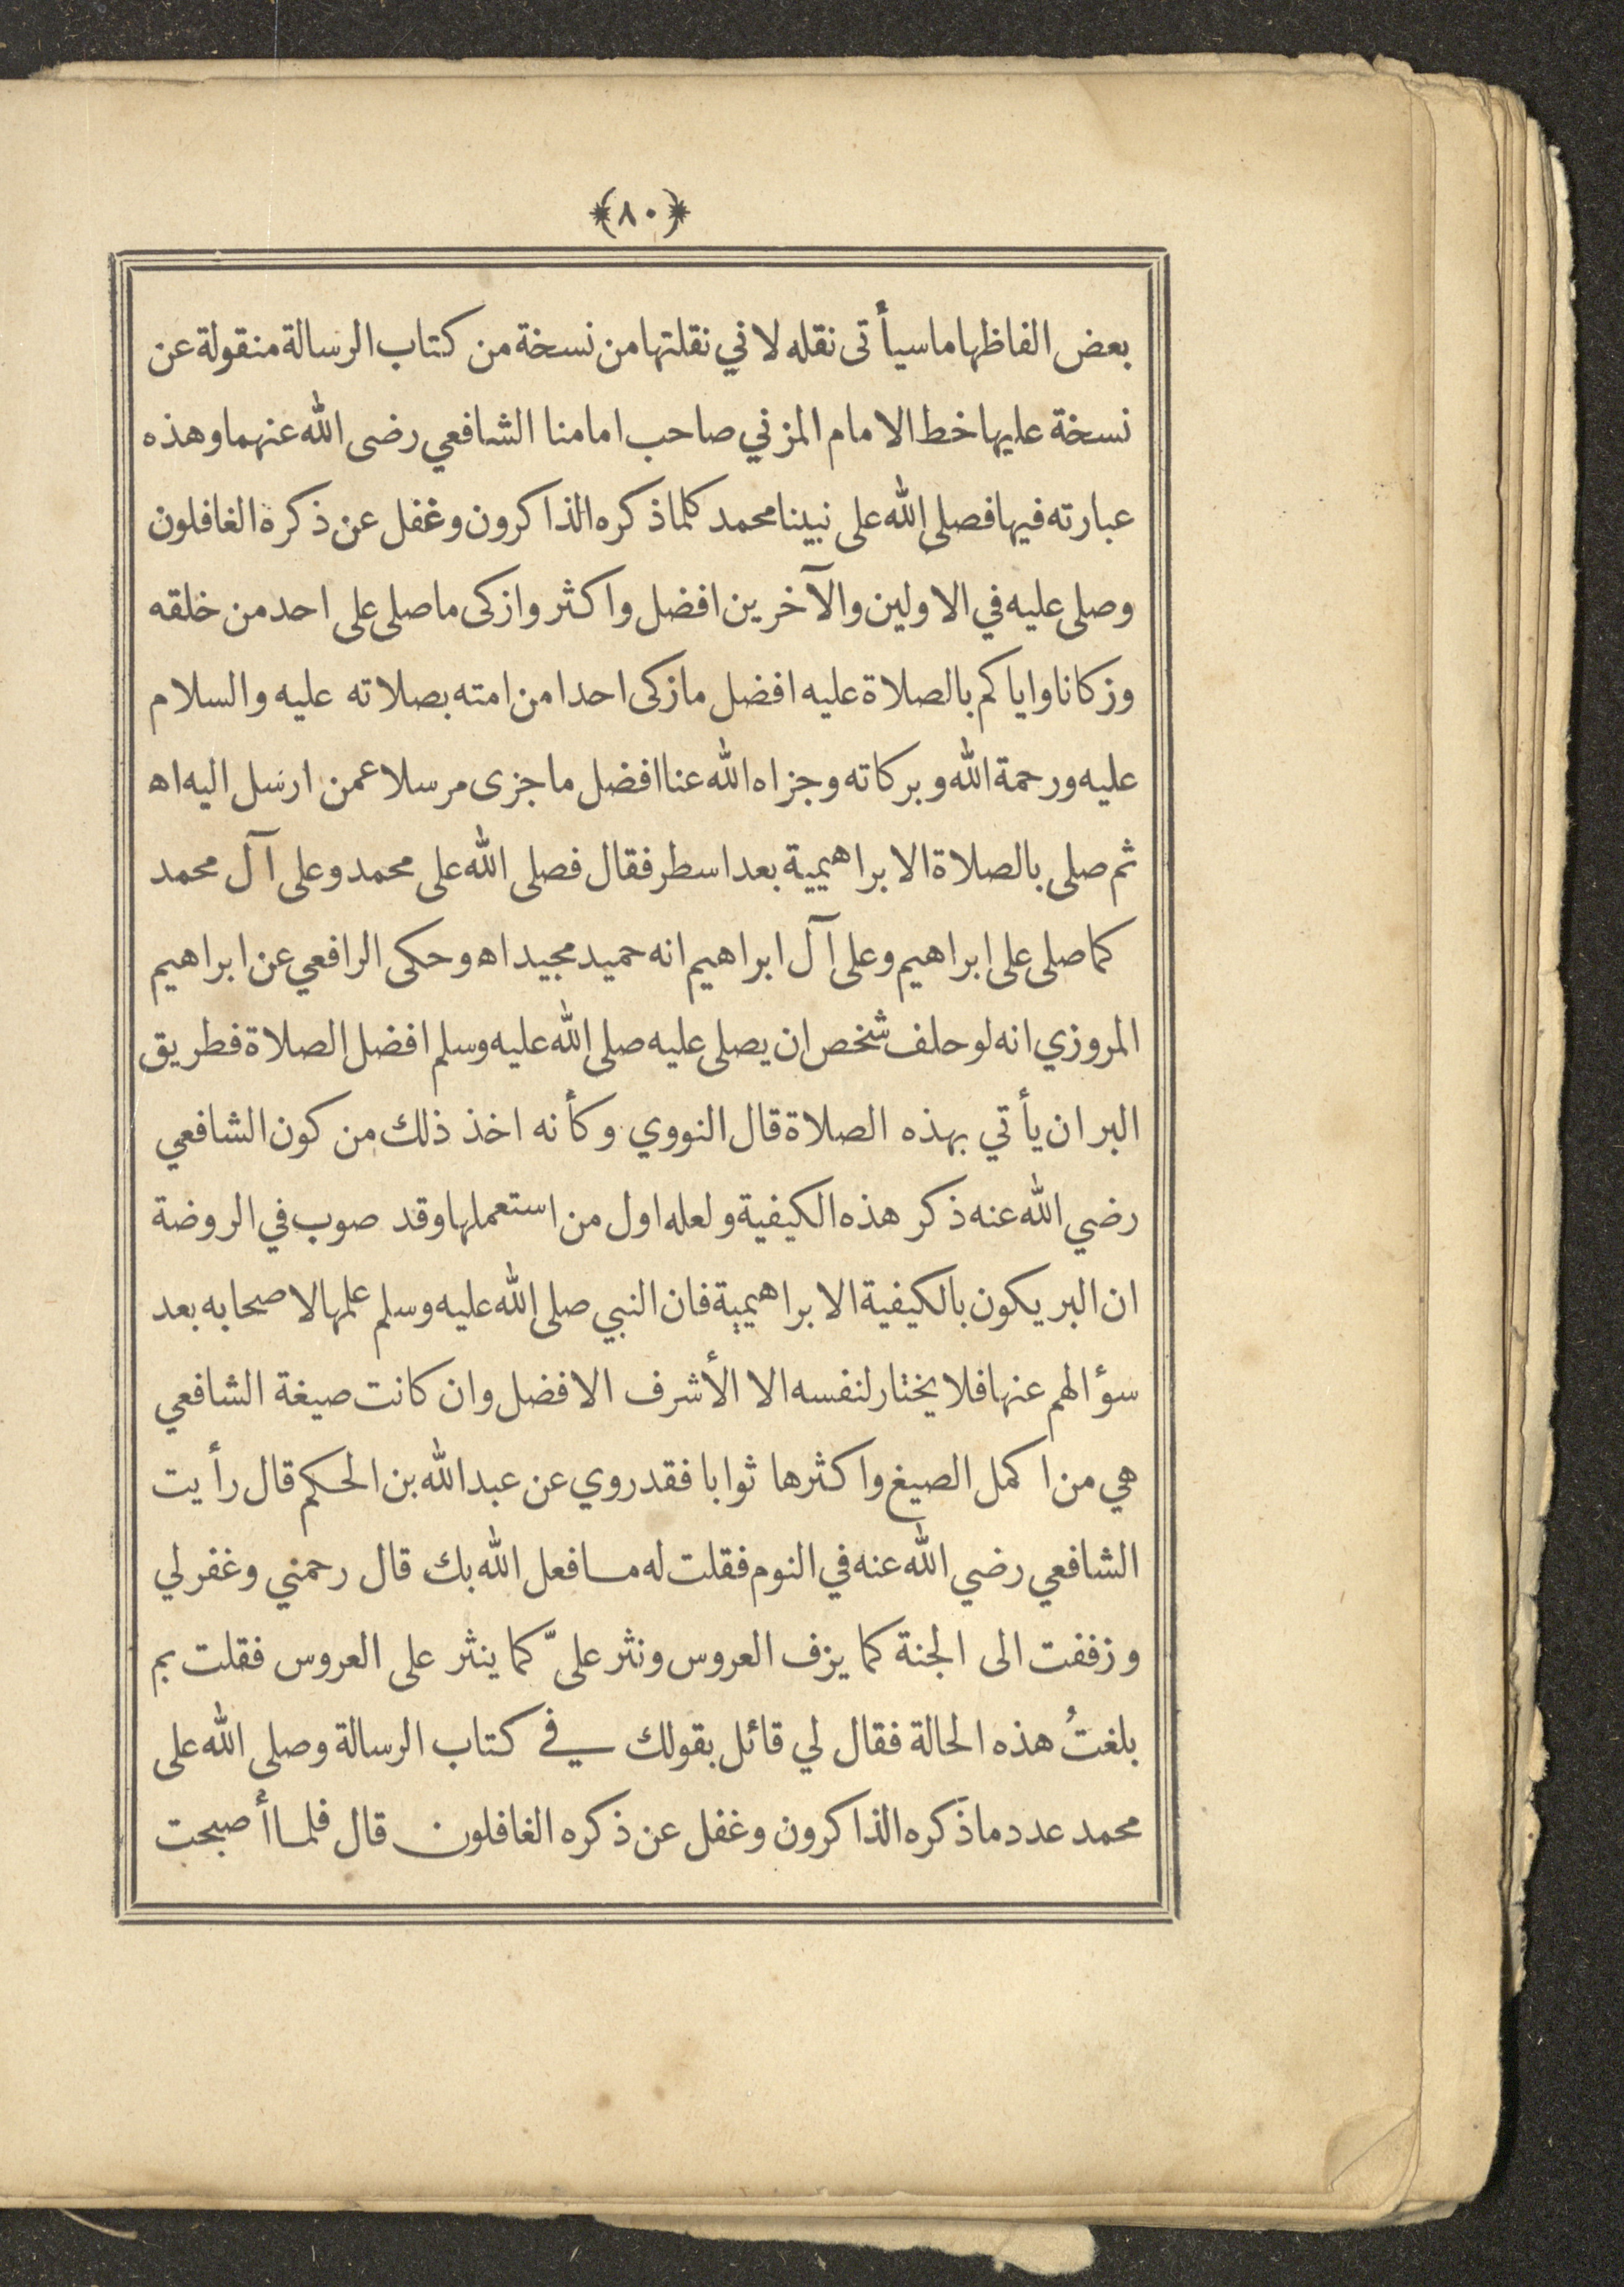 ﴿٨٠﴾
بعض الفاظها ما سيأتى نقله لاني نقلتها من نسخة من كتاب الرسالة منقولة عن
نسخة عليها خط الامام المزني صاحب امامنا الشافعي رضى الله عنهما وهذه
عبارته فيها فصلى الله على نبينا محمد كلما ذكره الذاكرون وغفل عن ذكره الغافلون
وصلى عليه في الاولين والآخرين افضل واكثر وازكى ما صلى على احد من خلقه
وزكانا واياكم بالصلاة عليه افضل ما زكى احدا من امته بصلاته عليه والسلام
عليه ورحمة الله وبركاته وجزاه الله عنا افضل ما جزى مرسلا عمن ارسل اليه اه
ثم صلى بالصلاة الابراهيمية بعد اسطر فقال فصلى الله على محمد وعلى آل محمد
كما صلى على ابراهيم وعلى آل ابراهيم انه حميد مجيد اه وحكى الرافعي عن ابراهيم
المروزي انه لو حلف شخص ان يصلى عليه صلى الله عليه وسلم افضل الصلاة فطريق
البر ان يأتي بهذه الصلاة قال النووي وكأنه اخذ ذلك من كون الشافعي
رضي الله عنه ذكر هذه الكيفية ولعله اول من استعملها وقد صوب في الروضة
ان البر يكون بالكيفية الابراهيمية فان النبي صلى الله عليه وسلم علمها لاصحابه بعد
سؤالهم عنها فلا يختار لنفسه الا الأشرف الافضل وان كانت صيغة الشافعي
هي من اكمل الصيغ واكثرها ثوابا فقد روي عن عبد الله بن الحكم قال رأيت
الشافعي رضي الله عنه في النوم فقلت له ما فعل الله بك قال رحمني وغفر لي
وزففت الى الجنة كما يزف العروس ونثر علىّ كما ينثر على العروس فقلت بم
بلغتُ هذه الحالة فقال لي قائل بقولك في كتاب الرسالة وصلى الله على
محمد عدد ما ذكره الذاكرون وغفل عن ذكره الغافلون قال فلما أصبحت